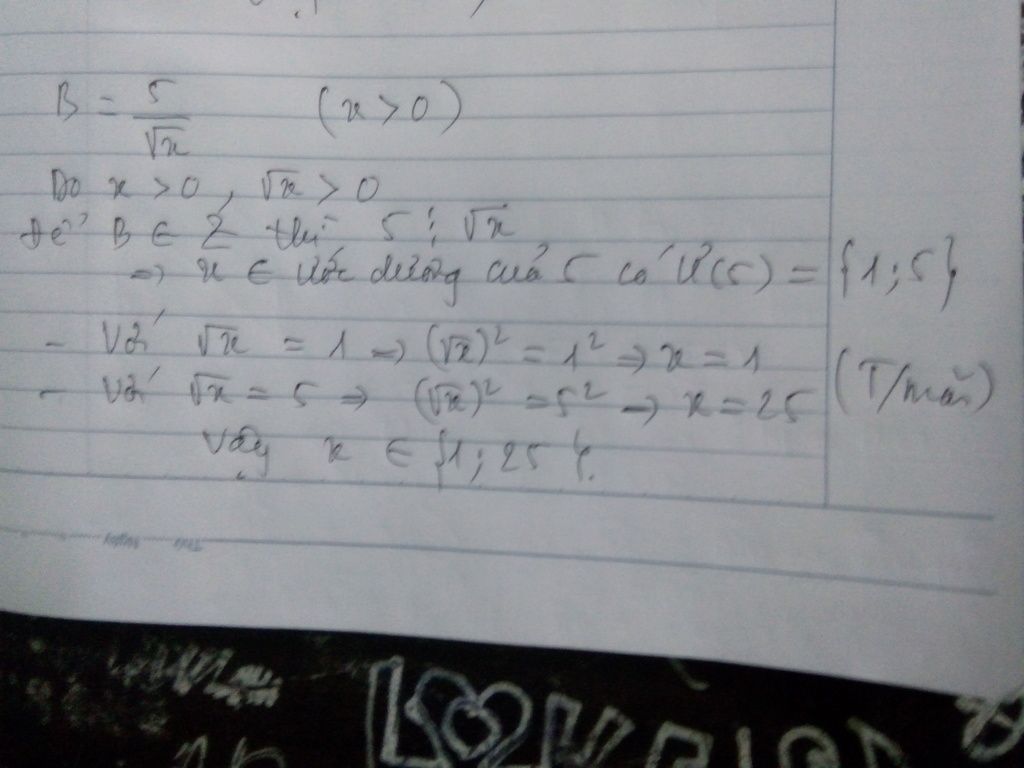 B = 5/√x (x > 0)
Do x > 0, √x > 0
Để B ∈ Z thì 5 ⋮ √x
=> x ∈ ước dương của 5 có Ư(5) = {1; 5}
- Với √x = 1 => (√x)² = 1² => x = 1
- Với √x = 5 => (√x)² = 5² => x = 25 (T/mãn)
Vậy x ∈ {1; 25}.